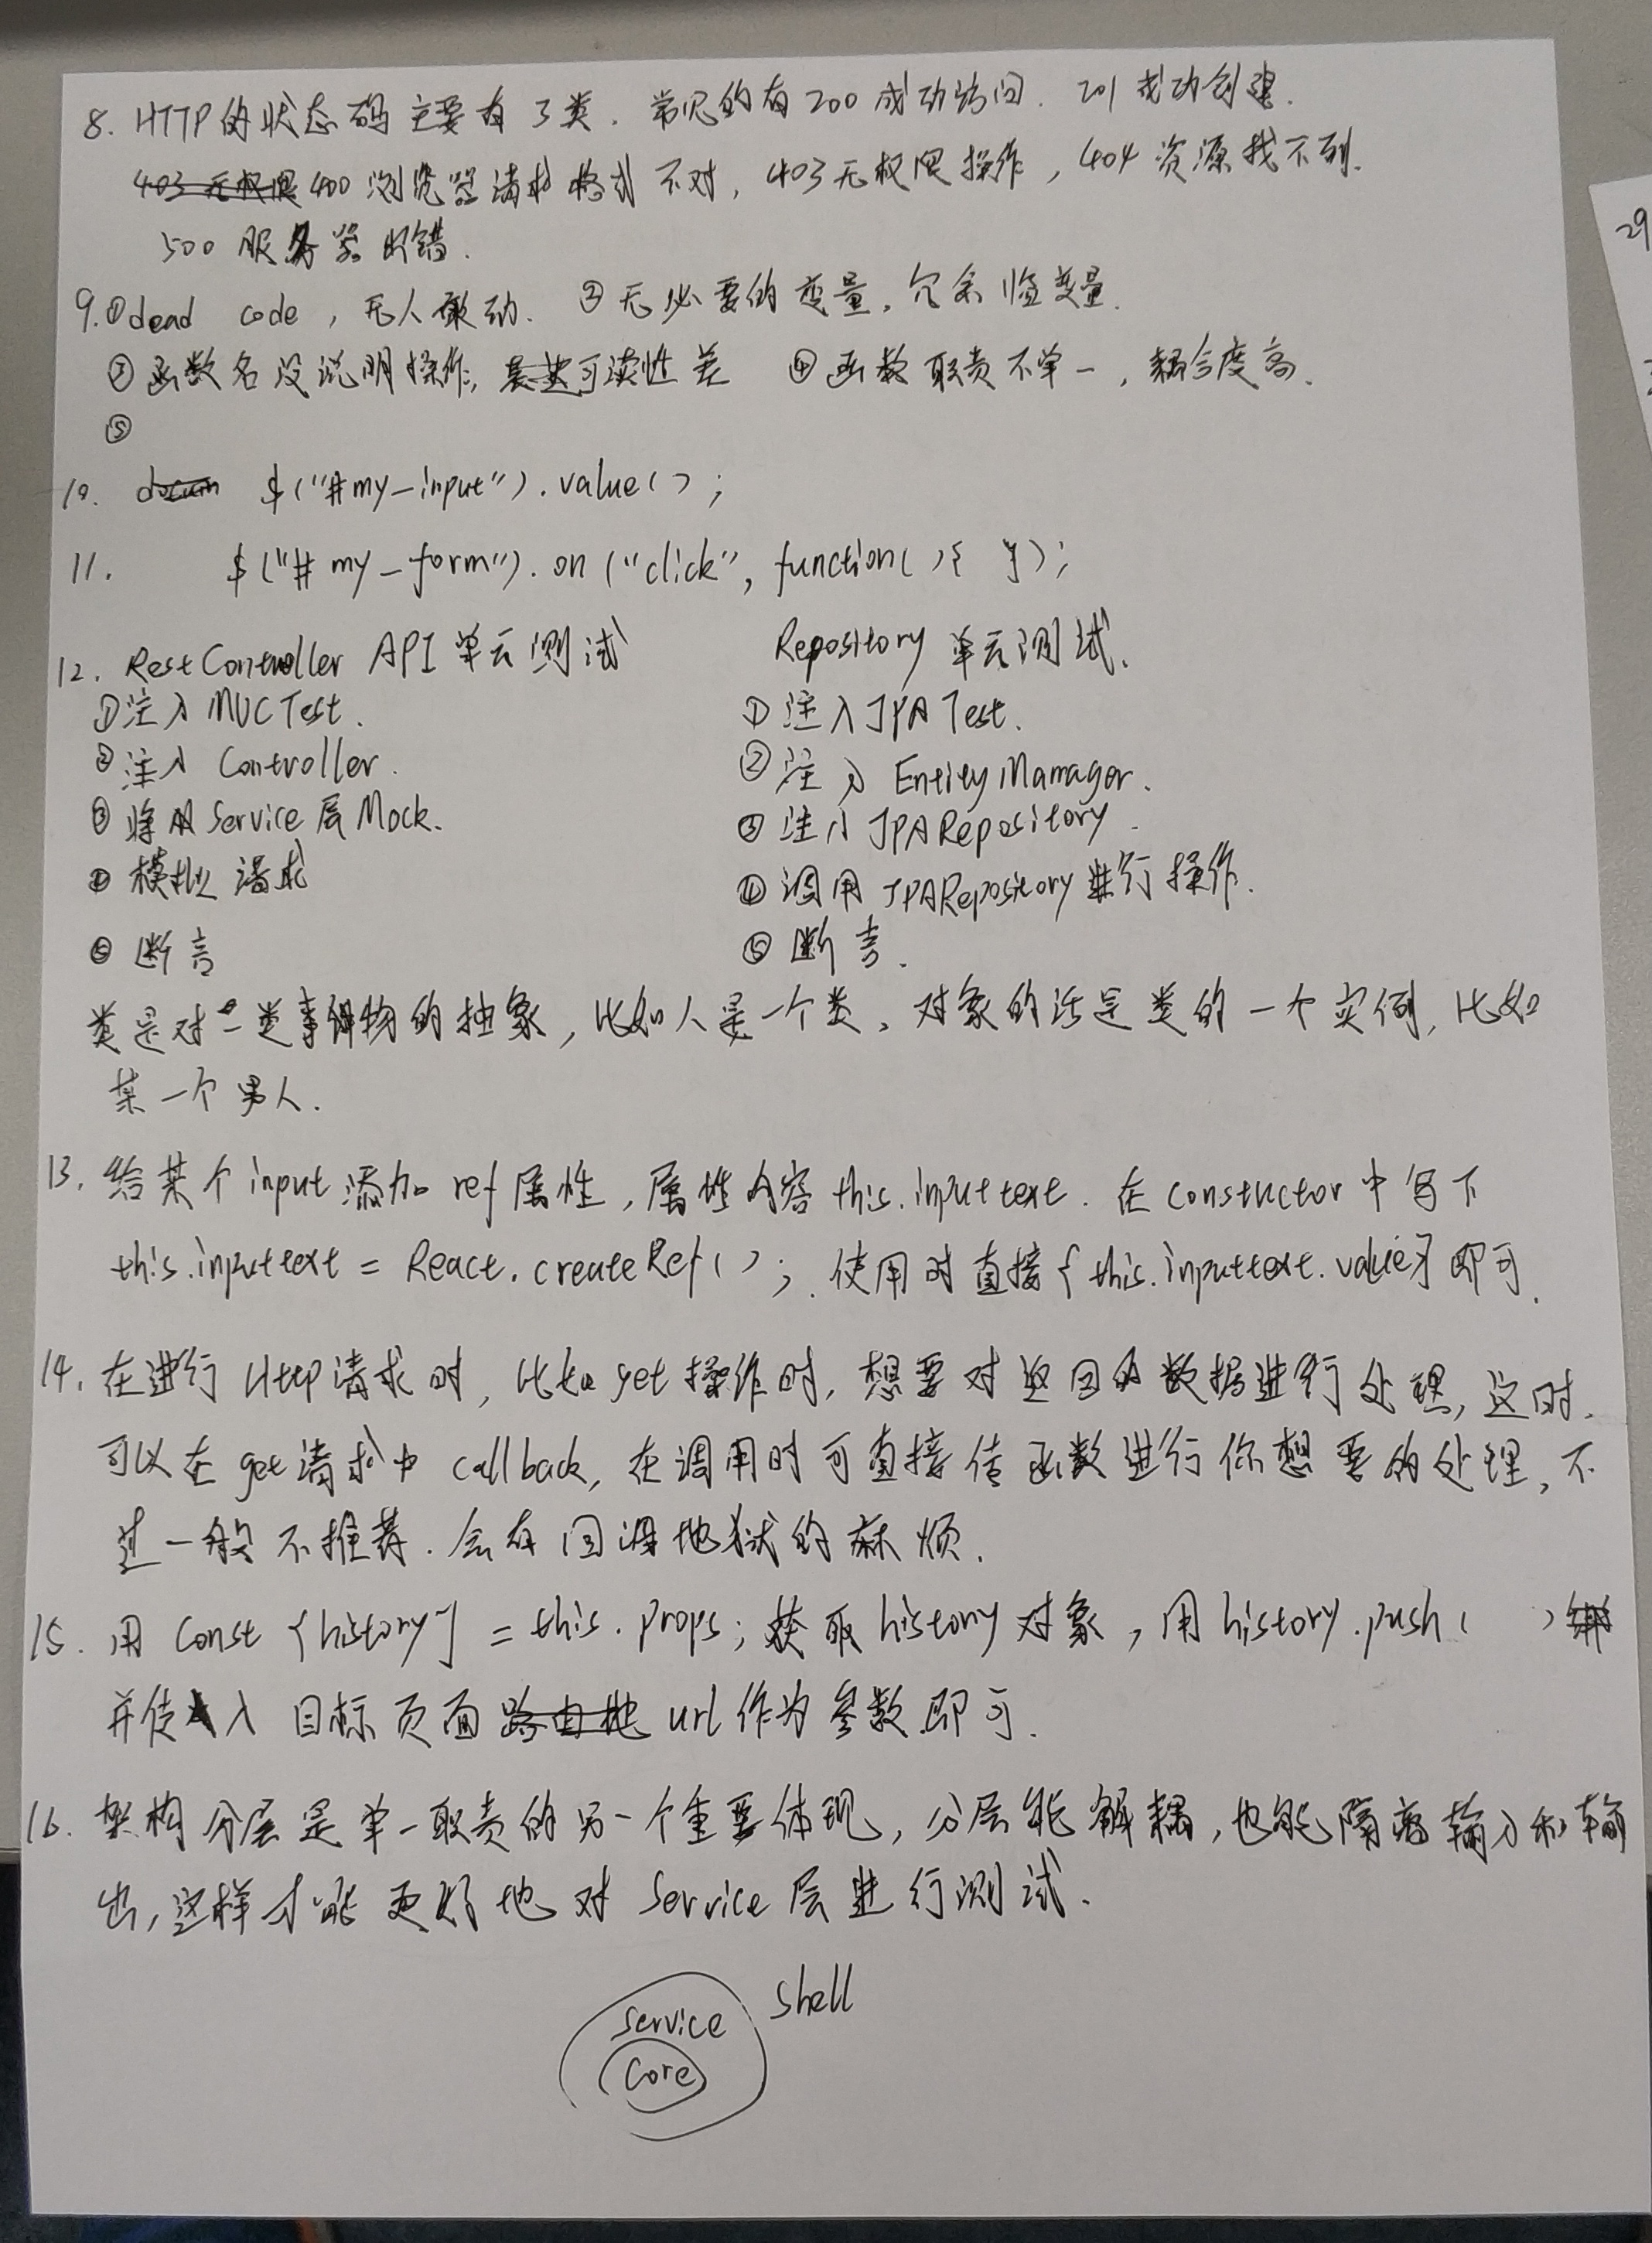 8. HTTP的状态码主要有3类. 常见的有200成功访问. 201成功创建.
403 无权限 400 浏览器请求格式不对, 403无权限操作, 404 资源找不到.
500 服务器出错.
9.①dead code, 无人敢动. ②无必要的变量, 冗余临变量.
③函数名没说明操作, 可读性差 ④函数职责不单一, 耦合度高.
⑤
10. docum $("#my-input").value();
11. $("#my-form").on("click", function(){ });
12. RestController API单元测试 Repository 单元测试.
①注入MVCTest. ①注入JPATest.
②注入Controller. ②注入EntityManager.
③将Service层Mock. ③注入JPARepository.
④模拟请求 ④调用JPARepository进行操作.
⑤断言 ⑤断言.
类是对一类事物的抽象, 比如人是一个类, 对象的话是类的一个实例, 比如
某一个男人.
13. 给某个input添加ref属性, 属性内容this.inputtext. 在constuctor中写下
this.inputtext = React.createRef(); 使用时直接{this.inputtext.value}即可.
14. 在进行Http请求时, 比如get操作时, 想要对返回的数据进行处理, 这时.
可以在get请求中callback, 在调用时可直接传函数进行你想要的处理, 不
过一般不推荐. 会有回调地狱的麻烦.
15. 用Const {history} = this.props; 获取history对象, 用history.push( )
并传入目标页面路由地url作为参数即可.
16. 架构分层是单一职责的另一个重要体现, 分层能解耦, 也能隔离输入和输
出, 这样才能更好地对Service层进行测试.
shell
Service
Core
29